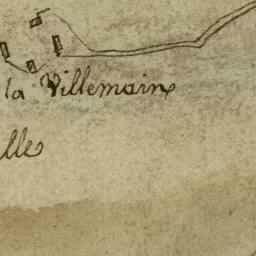 la Villemain
lle